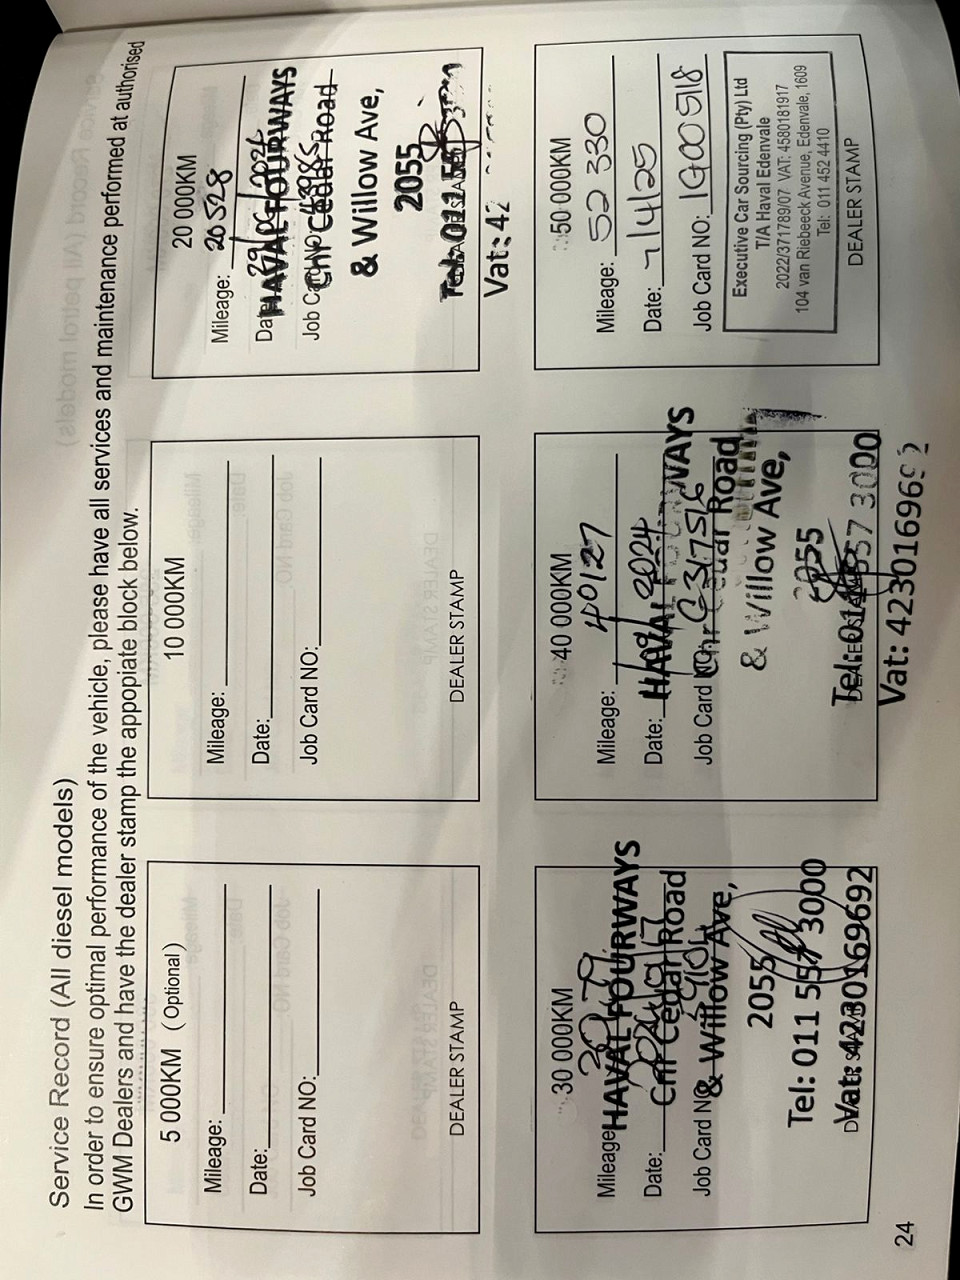 Service Record (All diesel models)
In order to ensure optimal performance of the vehicle, please have all services and maintenance performed at authorised
GWM Dealers and have the dealer stamp the appopiate block below.
5 000KM (Optional)
Mileage:
Date:
Job Card NO:
DEALER STAMP
10 000KM
Mileage:
Date:
Job Card NO:
DEALER STAMP
20 000KM
Mileage: 20528
Date: 2024
HAVAL FOURWAYS
Job Card NO:
Cnr Cedar Road
& Willow Ave,
2055
Tel: 011
Vat: 42
30 000KM
Mileage:
HAVAL FOURWAYS
Date:
Cnr Cedar Road
Job Card NO
& Willow Ave,
2055
Tel: 011 557 3000
Vat: 4230169692
40 000KM
Mileage: 40127
Date: 2024
HAVAL FOURWAYS
Job Card NO:
Cnr Cedar Road
& Willow Ave,
2055
Tel: 011 557 3000
Vat: 423016969
50 000KM
Mileage: 52 330
Date: 7/4/25
Job Card NO: 1G00518
Executive Car Sourcing (Pty) Ltd
T/A Haval Edenvale
2022/371789/07 VAT: 4580181917
104 van Riebeeck Avenue, Edenvale, 1609
Tel: 011 452 4410
DEALER STAMP
24